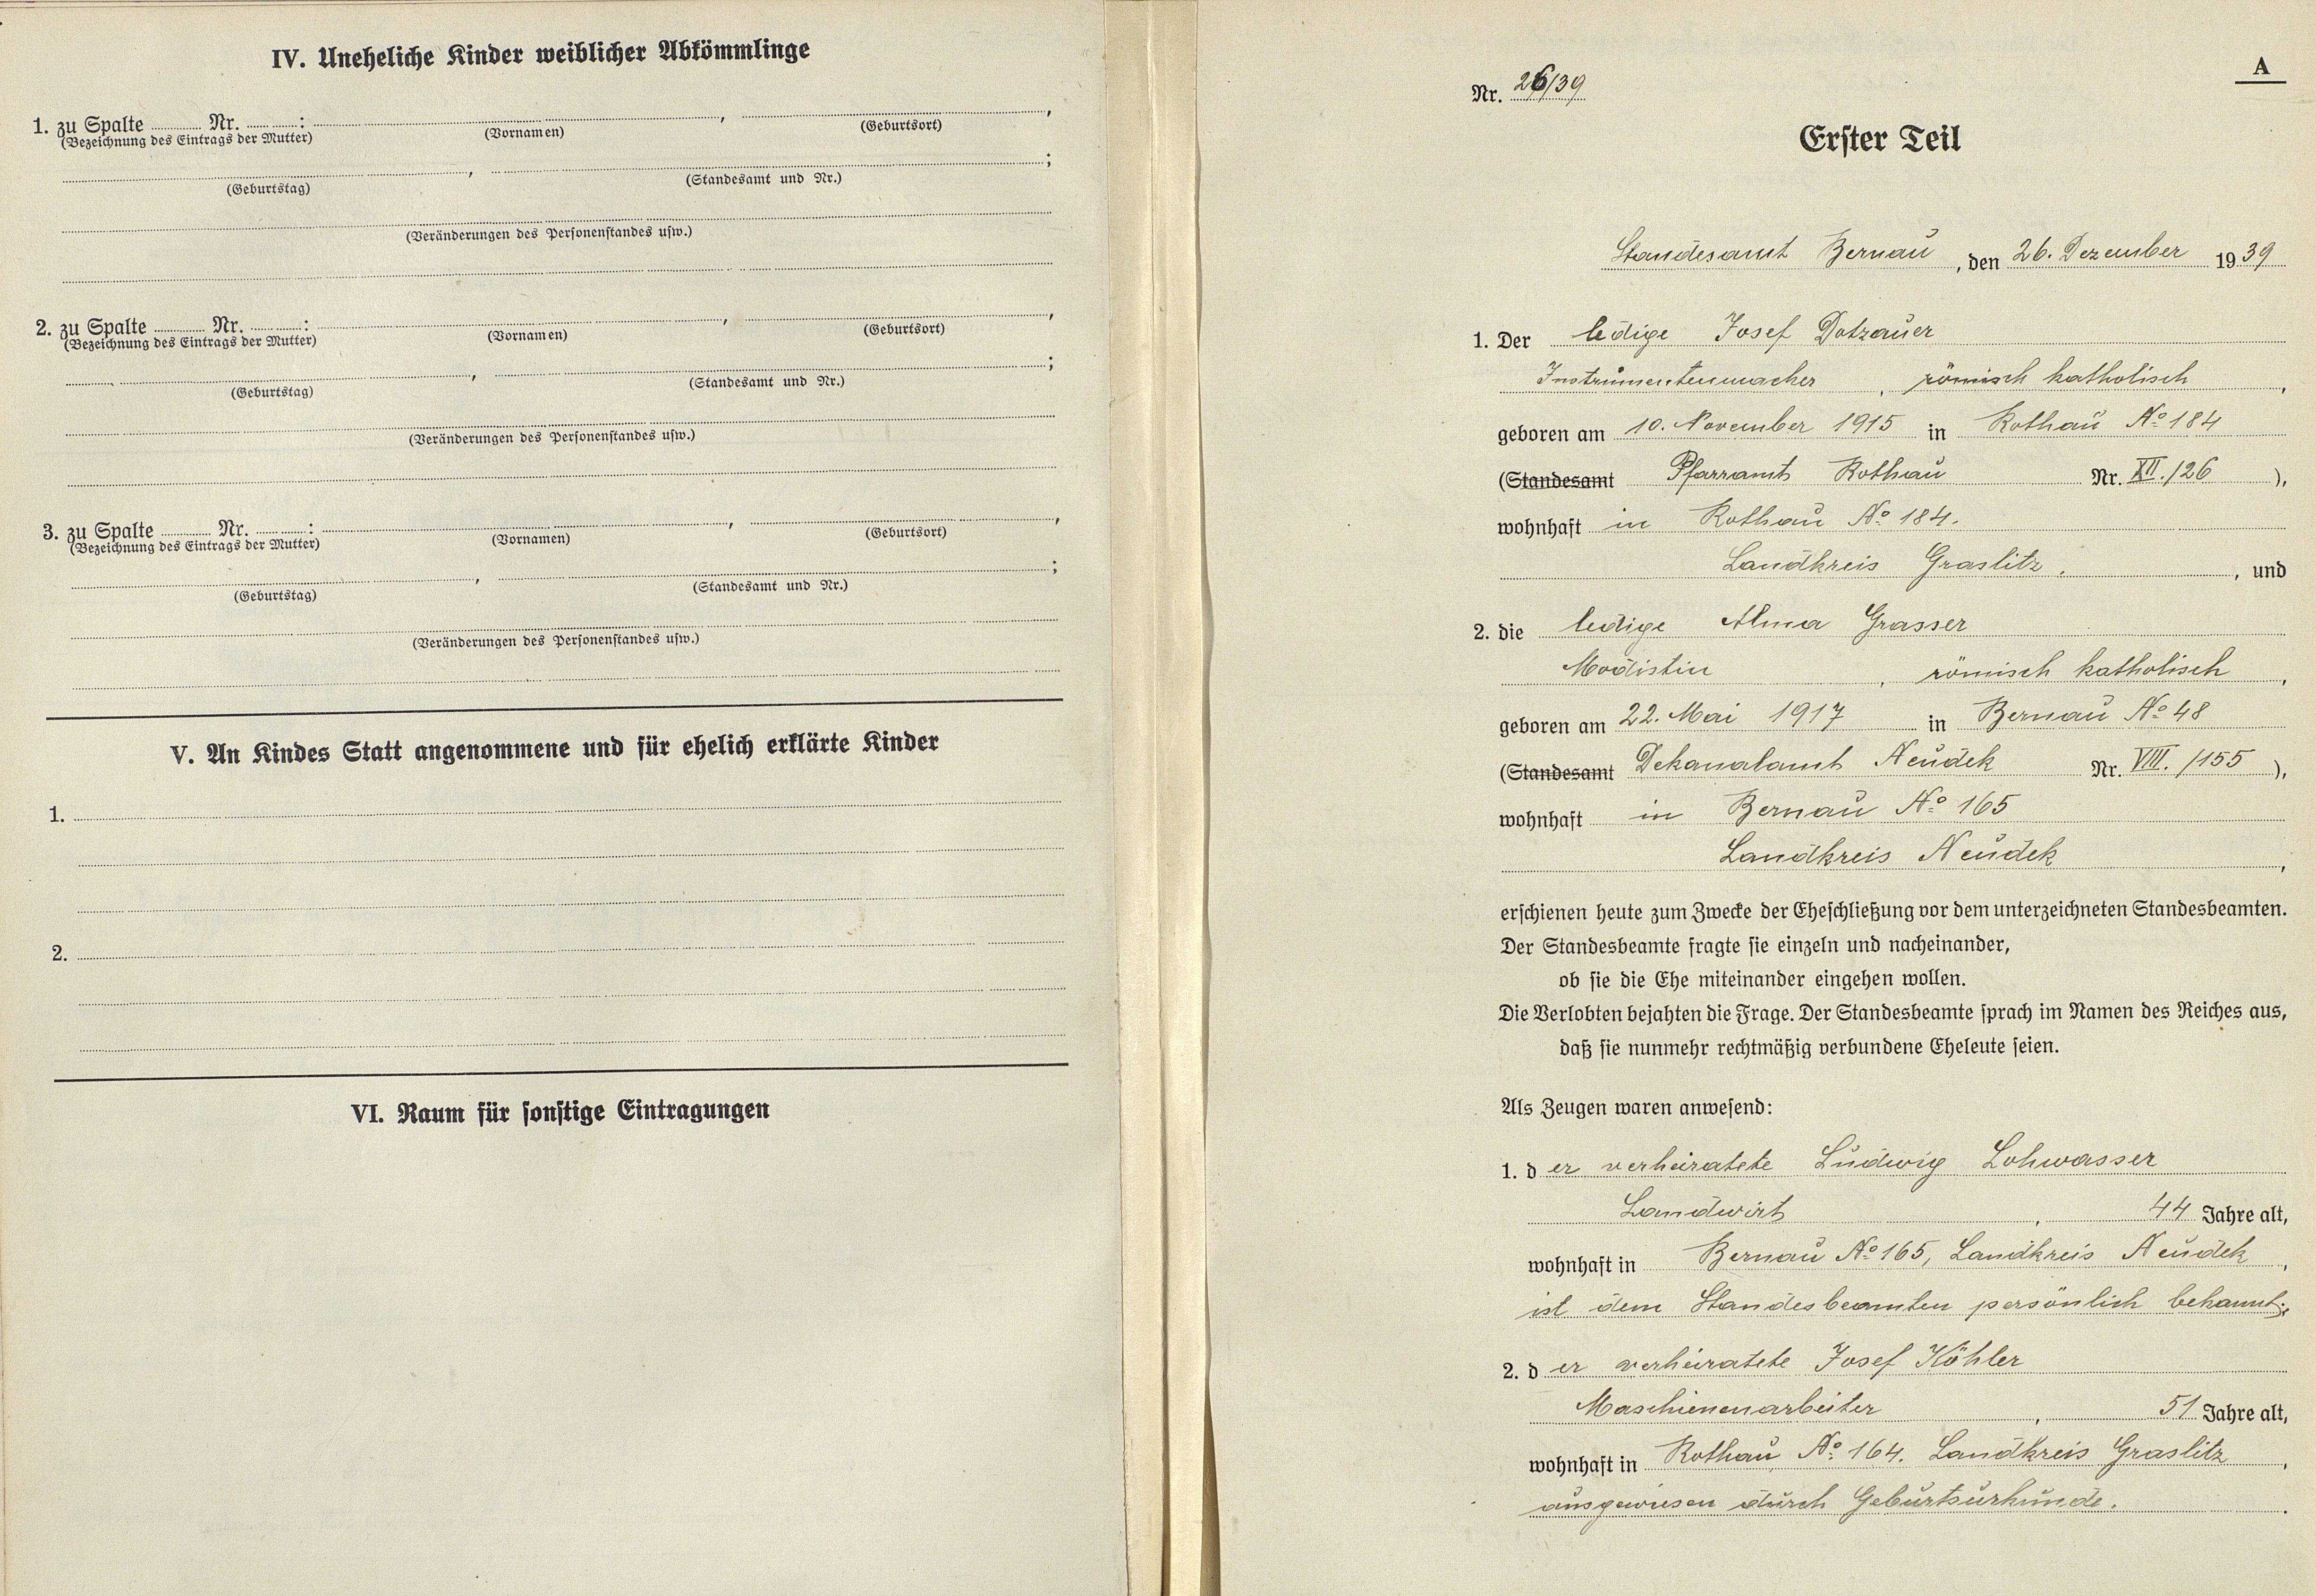 IV. Uneheliche Kinder weiblicher Abkömmlinge
1. zu Spalte Nr. : , ,
(Bezeichnung des Eintrags der Mutter) (Vornamen) (Geburtsort)
, ;
(Geburtstag) (Standesamt und Nr.)
(Veränderungen des Personenstandes usw.)
2. zu Spalte Nr. : , ,
(Bezeichnung des Eintrags der Mutter) (Vornamen) (Geburtsort)
, ;
(Geburtstag) (Standesamt und Nr.)
(Veränderungen des Personenstandes usw.)
3. zu Spalte Nr. : , ,
(Bezeichnung des Eintrags der Mutter) (Vornamen) (Geburtsort)
, ;
(Geburtstag) (Standesamt und Nr.)
(Veränderungen des Personenstandes usw.)
V. An Kindes Statt angenommene und für ehelich erklärte Kinder
1.
2.
VI. Raum für sonstige Eintragungen
A
Nr. 26/39
Erster Teil
Standesamt Bernau, den 26. Dezember 1939
1. Der ledige Josef Dotzauer
Instrumentenmacher, römisch katholisch,
geboren am 10. November 1915 in Rothau No 184
(Standesamt Pfarramt Rothau Nr. XII./26),
wohnhaft in Rothau No 184.
Landkreis Graslitz., und
2. die ledige Alma Grasser
Modistin, römisch katholisch,
geboren am 22. Mai 1917 in Bernau No 48
(Standesamt Dekanalamt Neudek Nr. VIII./155),
wohnhaft in Bernau No 165
Landkreis Neudek,
erschienen heute zum Zwecke der Eheschließung vor dem unterzeichneten Standesbeamten.
Der Standesbeamte fragte sie einzeln und nacheinander,
ob sie die Ehe miteinander eingehen wollen.
Die Verlobten bejahten die Frage. Der Standesbeamte sprach im Namen des Reiches aus,
daß sie nunmehr rechtmäßig verbundene Eheleute seien.
Als Zeugen waren anwesend:
1. der verheiratete Ludwig Lohwasser
Landwirt, 44 Jahre alt,
wohnhaft in Bernau No 165, Landkreis Neudek,
ist dem Standesbeamten persönlich bekannt;
2. der verheiratete Josef Köhler
Maschienenarbeiter, 51 Jahre alt,
wohnhaft in Rothau No 164. Landkreis Graslitz,
ausgewiesen durch Geburtsurkunde.